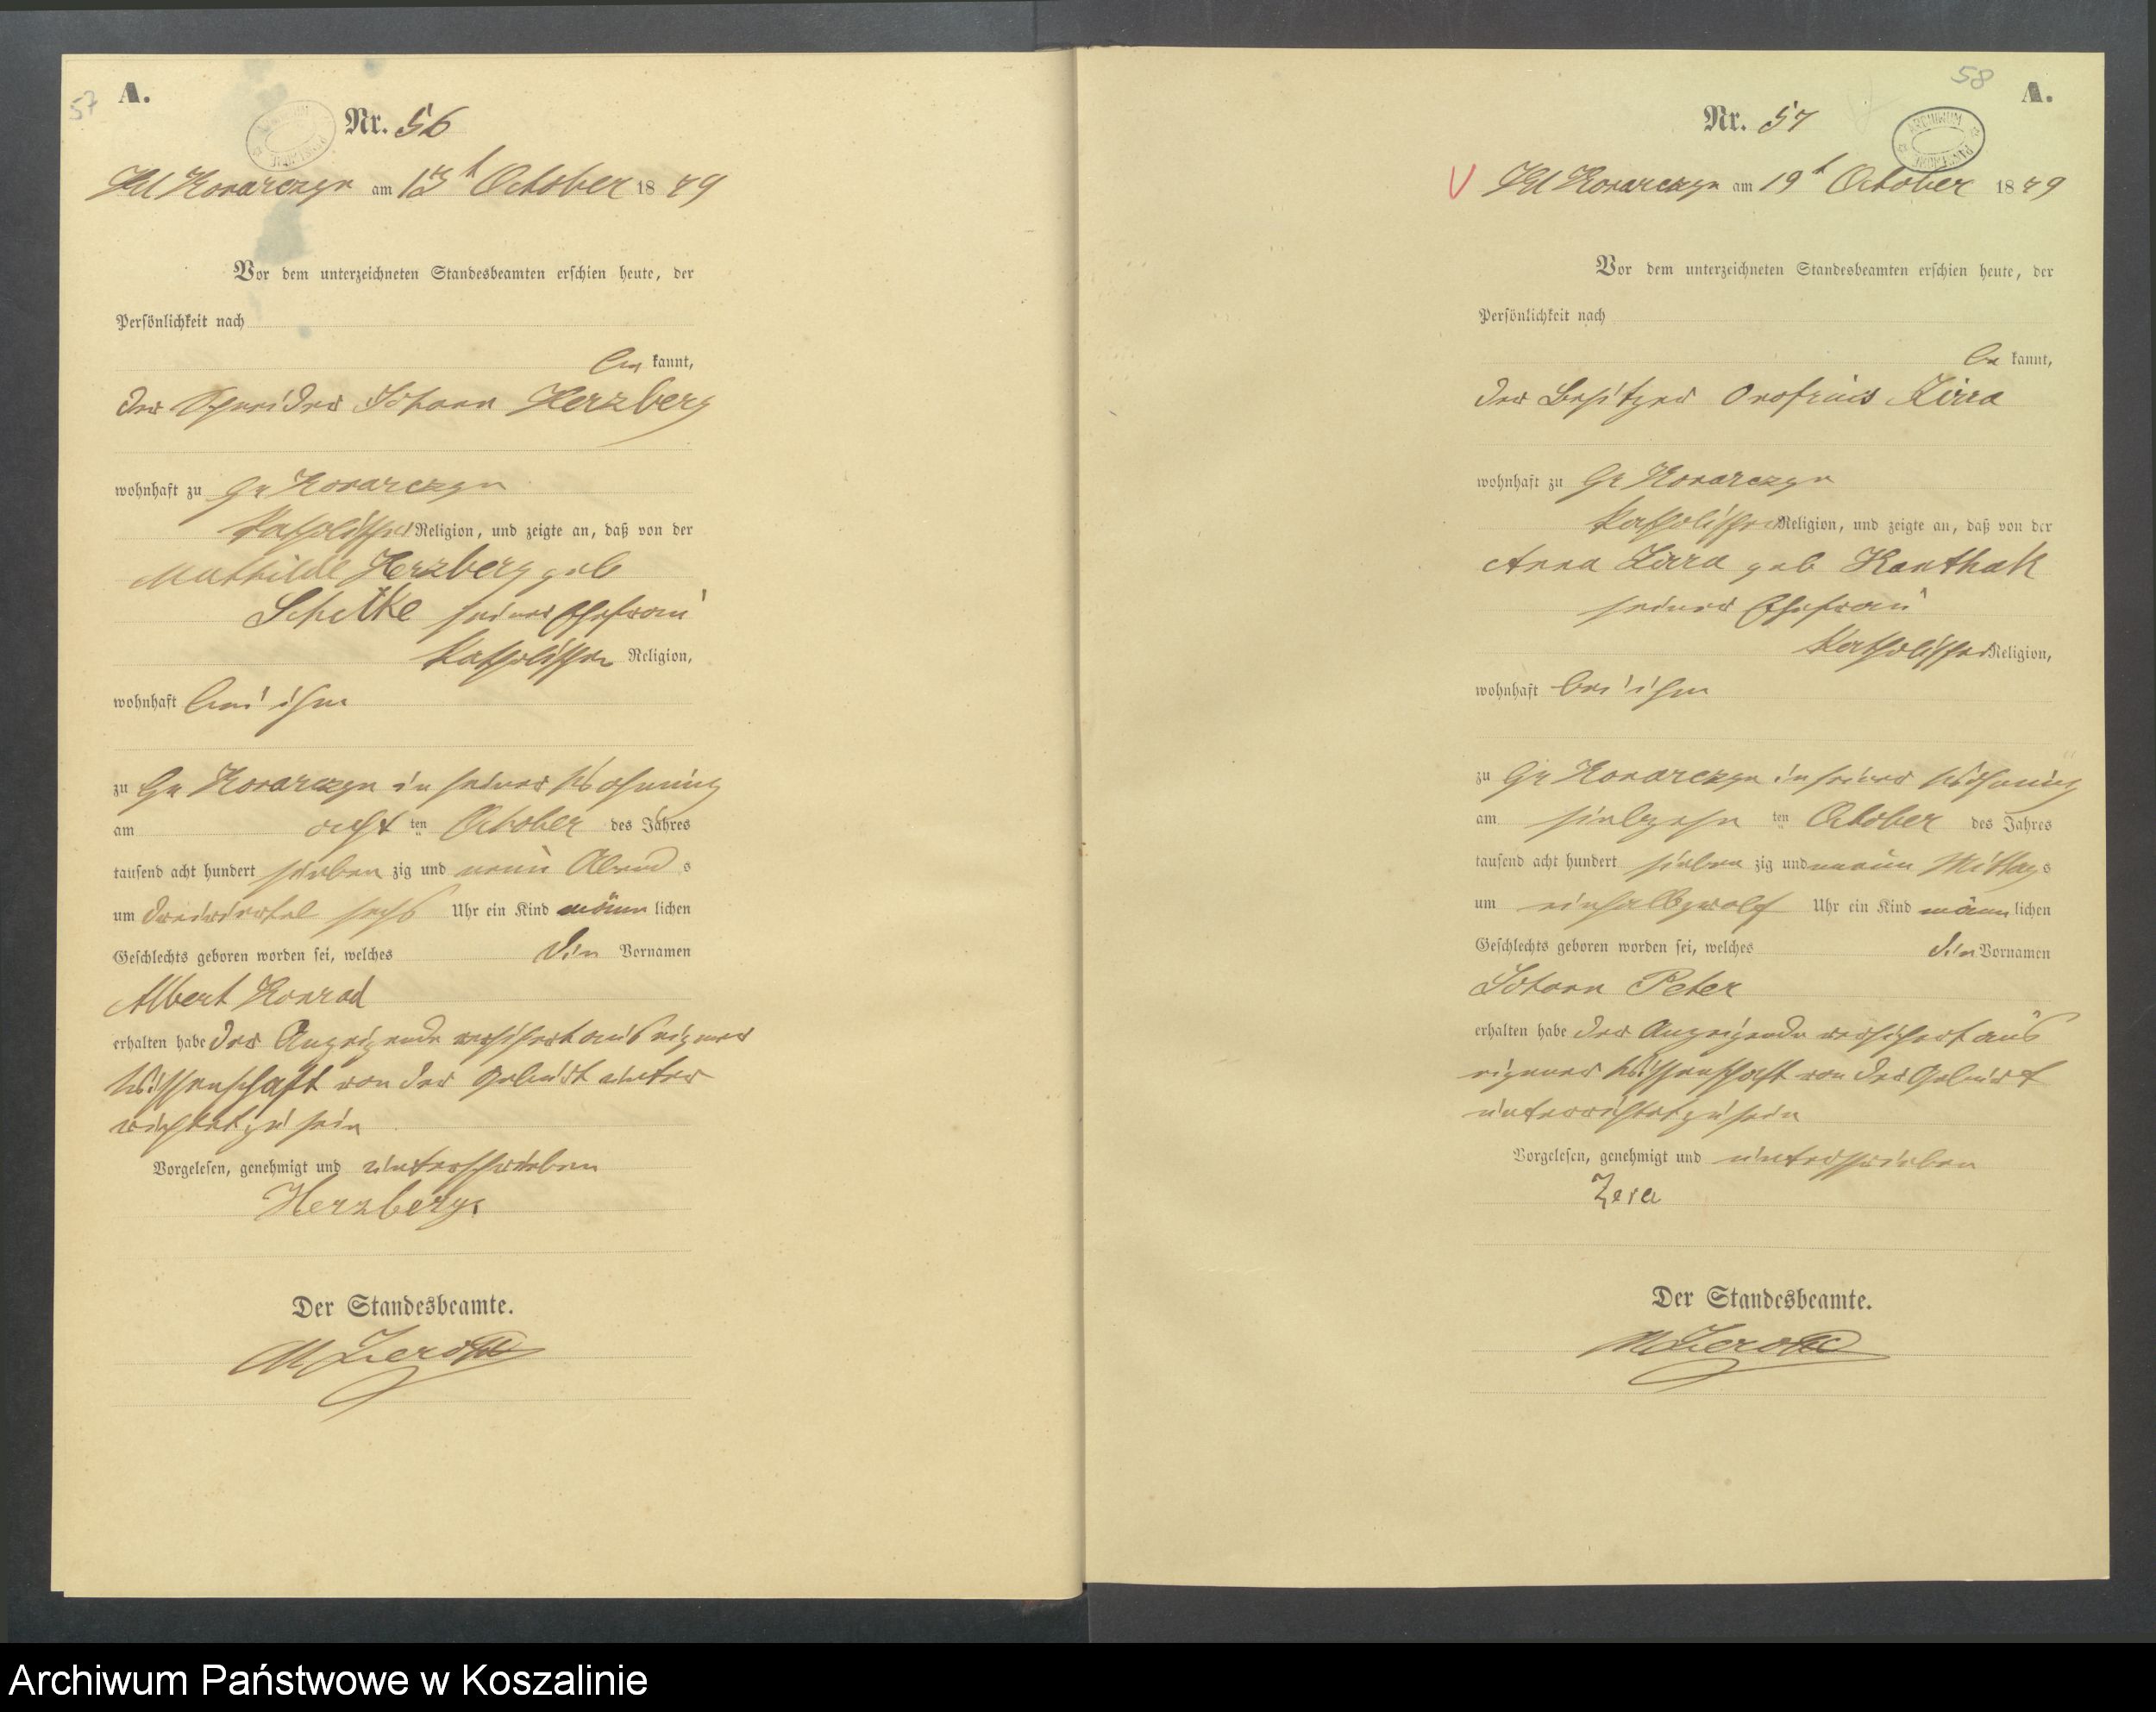 57
A.
Nr. 56
Kl Kovarczyn am 13t October 1879
Vor dem unterzeichneten Standesbeamten erschien heute, der
Persönlichkeit nach
be kannt,
der Schneider Johann Herzberg
wohnhaft zu Gr Kovarczyn
katholischer Religion, und zeigte an, daß von der
Mathilde Herzberg geb
seiner Ehefrau
katholischer Religion,
wohnhaft bei ihm
zu Gr Kovarczyn in seiner Wohnung
am acht ten October des Jahres
tausend acht hundert sieben zig und neun Abend s
um dreiviertel sechs Uhr ein Kind männ lichen
Geschlechts geboren worden sei, welches die Vornamen
Albert Konrad
erhalten habe der Anzeigende versichert aus eigener
Wissenschaft von der Geburt unter
richtet zu sein
Vorgelesen, genehmigt und unterschrieben
Herzberg
Der Standesbeamte.
58
A.
Nr. 57
ARCHIWUM PAŃSTWOWE
V Kl Kovarczyn am 19t October 1879
Vor dem unterzeichneten Standesbeamten erschien heute, der
Persönlichkeit nach
be kannt,
der Besitzer Onofrius
wohnhaft zu Gr Kovarczyn
katholischer Religion, und zeigte an, daß von der
Anna geb Kanthak
seiner Ehefrau
katholischer Religion,
wohnhaft bei ihm
zu Gr Kovarczyn in seiner Wohnung
am siebzehn ten October des Jahres
tausend acht hundert sieben zig und neun Mittag s
um einhalbzwölf Uhr ein Kind männ lichen
Geschlechts geboren worden sei, welches die Vornamen
Johann Peter
erhalten habe der Anzeigende versichert aus
eigener Wissenschaft von der Geburt
unterrichtet zu sein
Vorgelesen, genehmigt und unterschrieben
Zera
Der Standesbeamte.
Archiwum Państwowe w Koszalinie